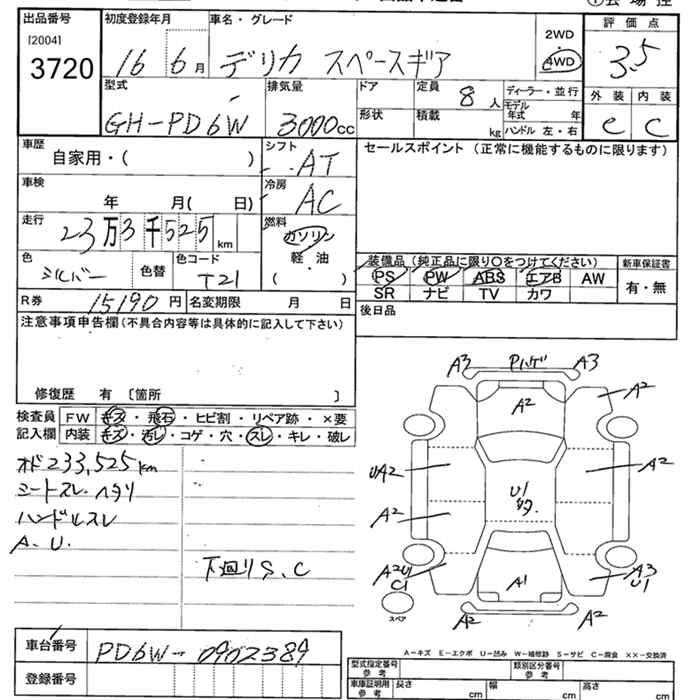 出品番号 初度登録年月 車名・グレード 2WD 評価点
[2004] 3720 16 6月 デリカ スペースギア 4WD 3.5
型式 排気量 ドア 定員 8人 ディーラー・並行 外装 内装
GH-PD6W 3000cc 形状 積載 kg モデル年式 年 ハンドル 左・右 e C
車歴 シフト セールスポイント (正常に機能するものに限ります)
自家用・( ) AT
車検 冷房
年 月( 日) AC
走行 燃料
23万3千525km ガソリン
色 色替 色コード 軽・油 装備品(純正品に限り〇をつけてください) 新車保証書
シルバー T21 ( ) PS PW ABS エアB AW 有・無
R券 15190円 名変期限 月 日 SR ナビ TV カワ
注意事項申告欄(不具合内容等は具体的に記入して下さい) 後日品
修復歴 有 [箇所 ]
検査員 FW キズ・飛石・ヒビ割・リペア跡・×要
記入欄 内装 キズ・汚レ・コゲ・穴・スレ・キレ・破レ
オド233,525km
シートスレ・ヘタリ
ハンドルスレ
A.U.
下回りS.C
A3 Pハゲ A3
A2 A2
UA2 A2
A2 U1
A2U1 C1 A1 A3 U1
スペア A2 A2
A-キズ E-エクボ U-凹み W-補修跡 S-サビ C-腐食 XX-交換済
車台番号 PD6W-0902389
登録番号
型式指定番号 参考 類別区分番号 参考
車庫証明用 参考 長さ cm 幅 cm 高さ cm